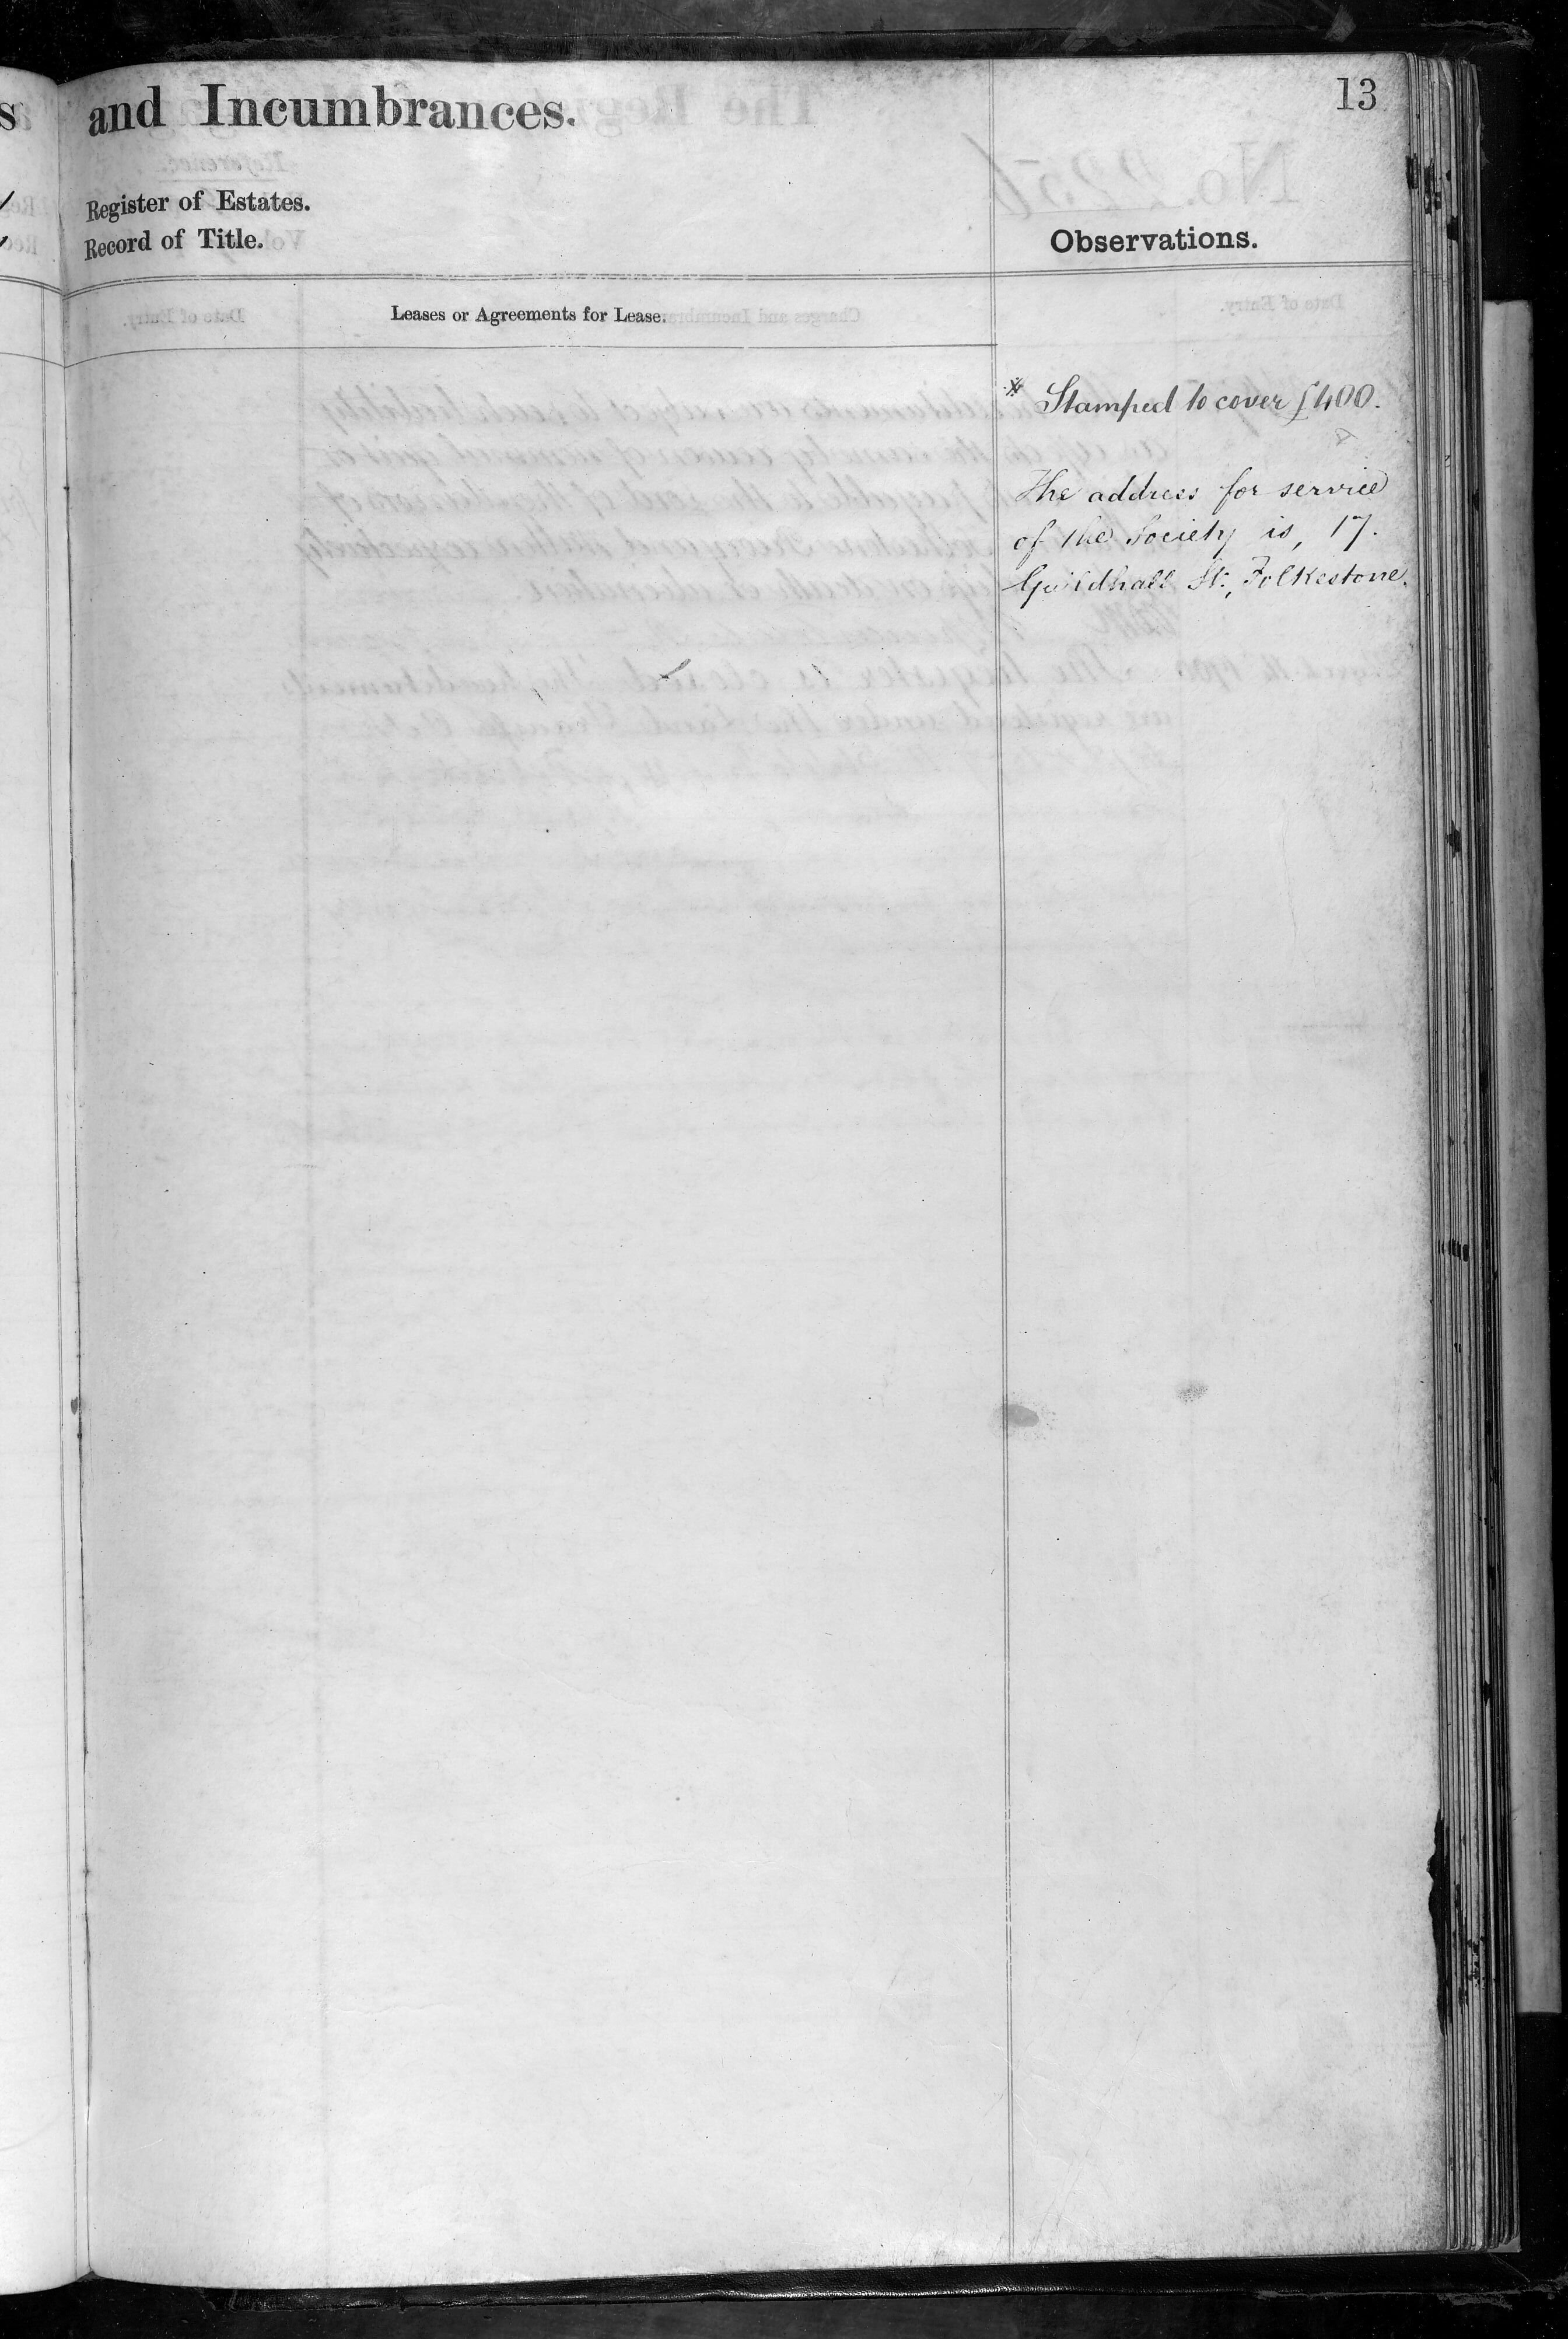 13
and Incumbrances.
Register of Estates.
Record of Title.
Observations.
Leases or Agreements for Lease.
* Stamped to cover £400.
The address for service
of the Society is, 17.
Guildhall St., Folkestone.